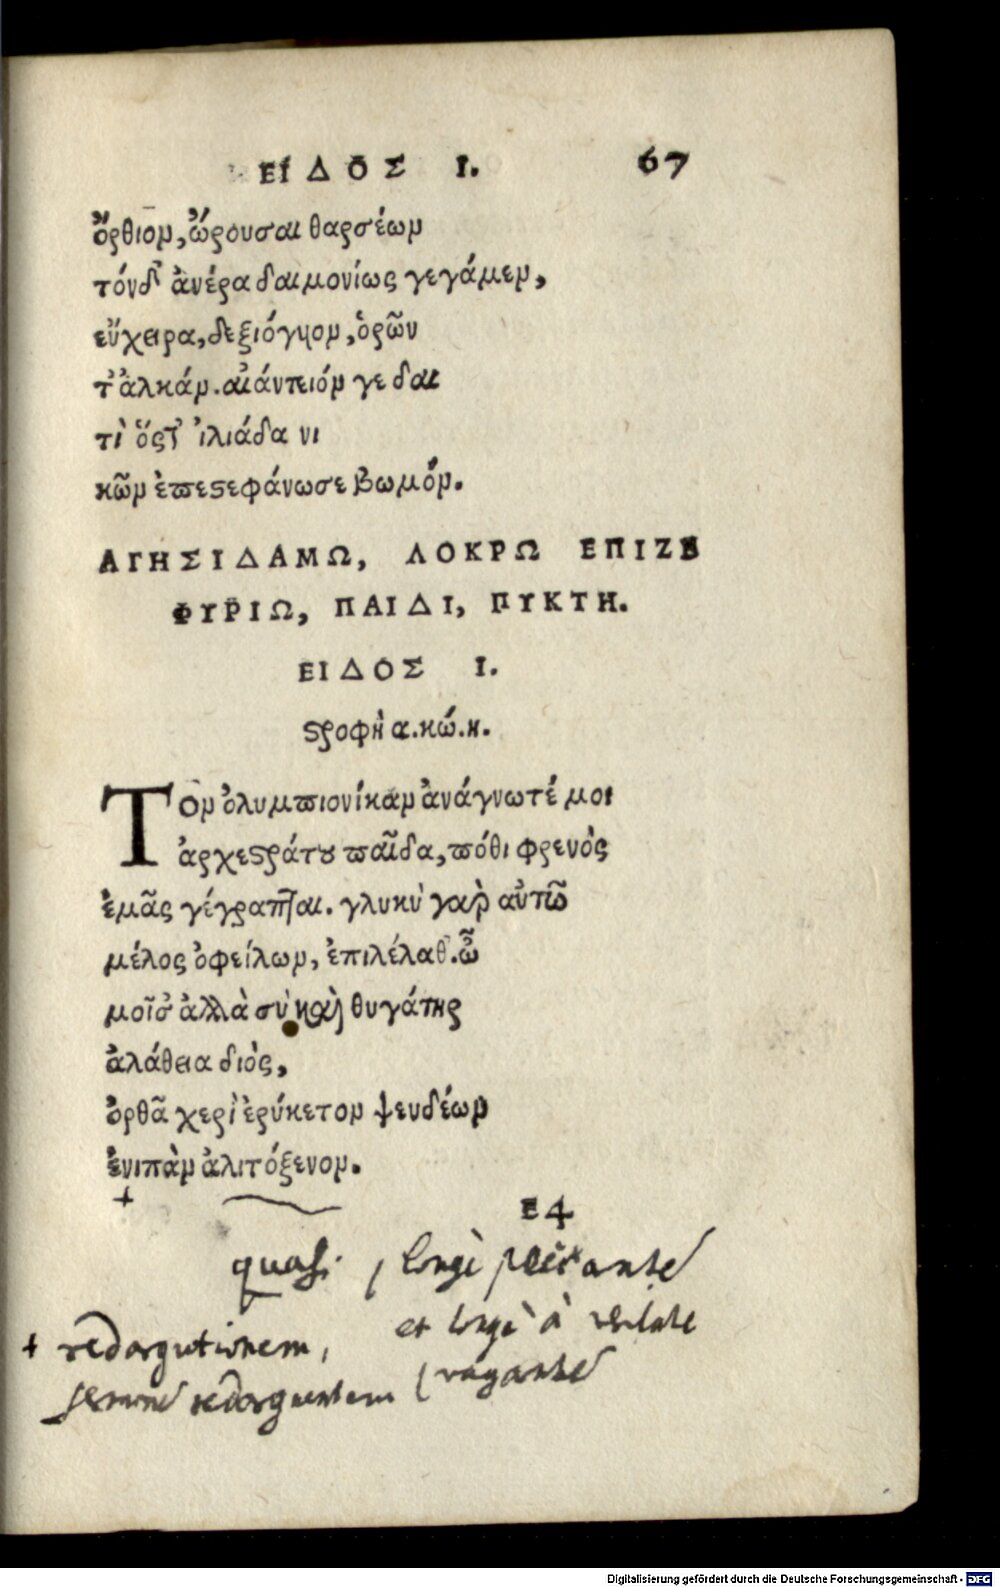 ΕΙΔΟΣ Ι. 67
ὄρθιον, ὤρουσαι θαρσέων
τόνδ' ἀνέρα δαιμονίως γεγάμεν,
εὔχειρα, δεξιόγυιον, ὁρῶν
τ' ἀλκάν. αἰάντειόν γε δαι
τὶ ὅς τ' ἰλιάδα νι
κῶν ἐπεστεφάνωσε βωμόν.
ΑΓΗΣΙΔΑΜΩ, ΛΟΚΡΩ ΕΠΙΖΕ
ΦΥΡΙΩ, ΠΑΙΔΙ, ΠΥΚΤΗ.
ΕΙΔΟΣ Ι.
στροφὴ α. κώ. κ.
Τὸν ὀλυμπιονίκαν ἀνάγνωτέ μοι
ἀρχεστράτου παῖδα, πόθι φρενὸς
ἐμᾶς γέγραπται. γλυκὺ γὰρ αὐτῶ
μέλος ὀφείλων, ἐπιλέλαθ'. ὦ
μοῖσ' ἀλλὰ σὺ καὶ θυγάτηρ
ἀλάθεια διὸς,
ὀρθᾶ χερὶ ἐρύκετον ψευδέων
ἐνιπὰν ἀλιτόξενον.
+
E4
quasi longè
et longè à
+ redargutionem,
redarguentem vagante
Digitalisierung gefördert durch die Deutsche Forschungsgemeinschaft - DFG